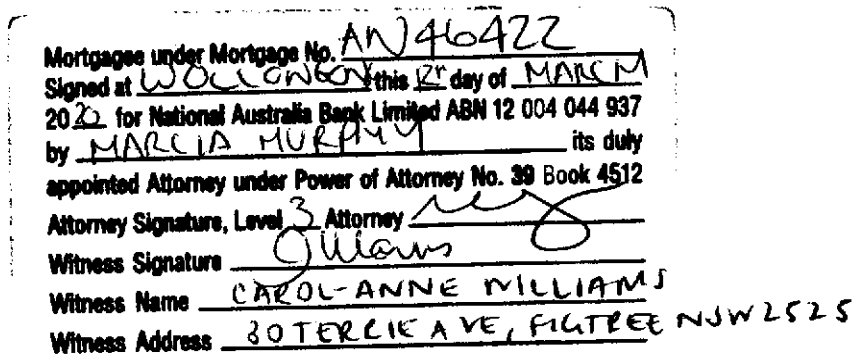 Mortgagee under Mortgage No. AN46422
Signed at WOLLONGONG this day of MARCH
20 for National Australia Bank Limited ABN 12 004 044 937
by MARCIA MURPHY its duly
appointed Attorney under Power of Attorney No. 39 Book 4512
Attorney Signature, Level 3 Attorney
Witness Signature
Witness Name CAROL-ANNE WILLIAMS
Witness Address AVE, FIGTREE NSW 2525